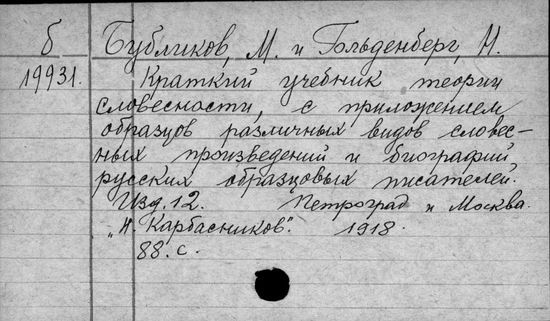 б
19931.
Бубликов, М. и Гольденберг, Н.
Краткий учебник теории
словесности, с приложением
образцов различных видов словес-
ных произведений и биографий
русских образцовых писателей.
Изд. 12. Петроград и Москва.
„Н. Карбасников". 1918.
88. с.